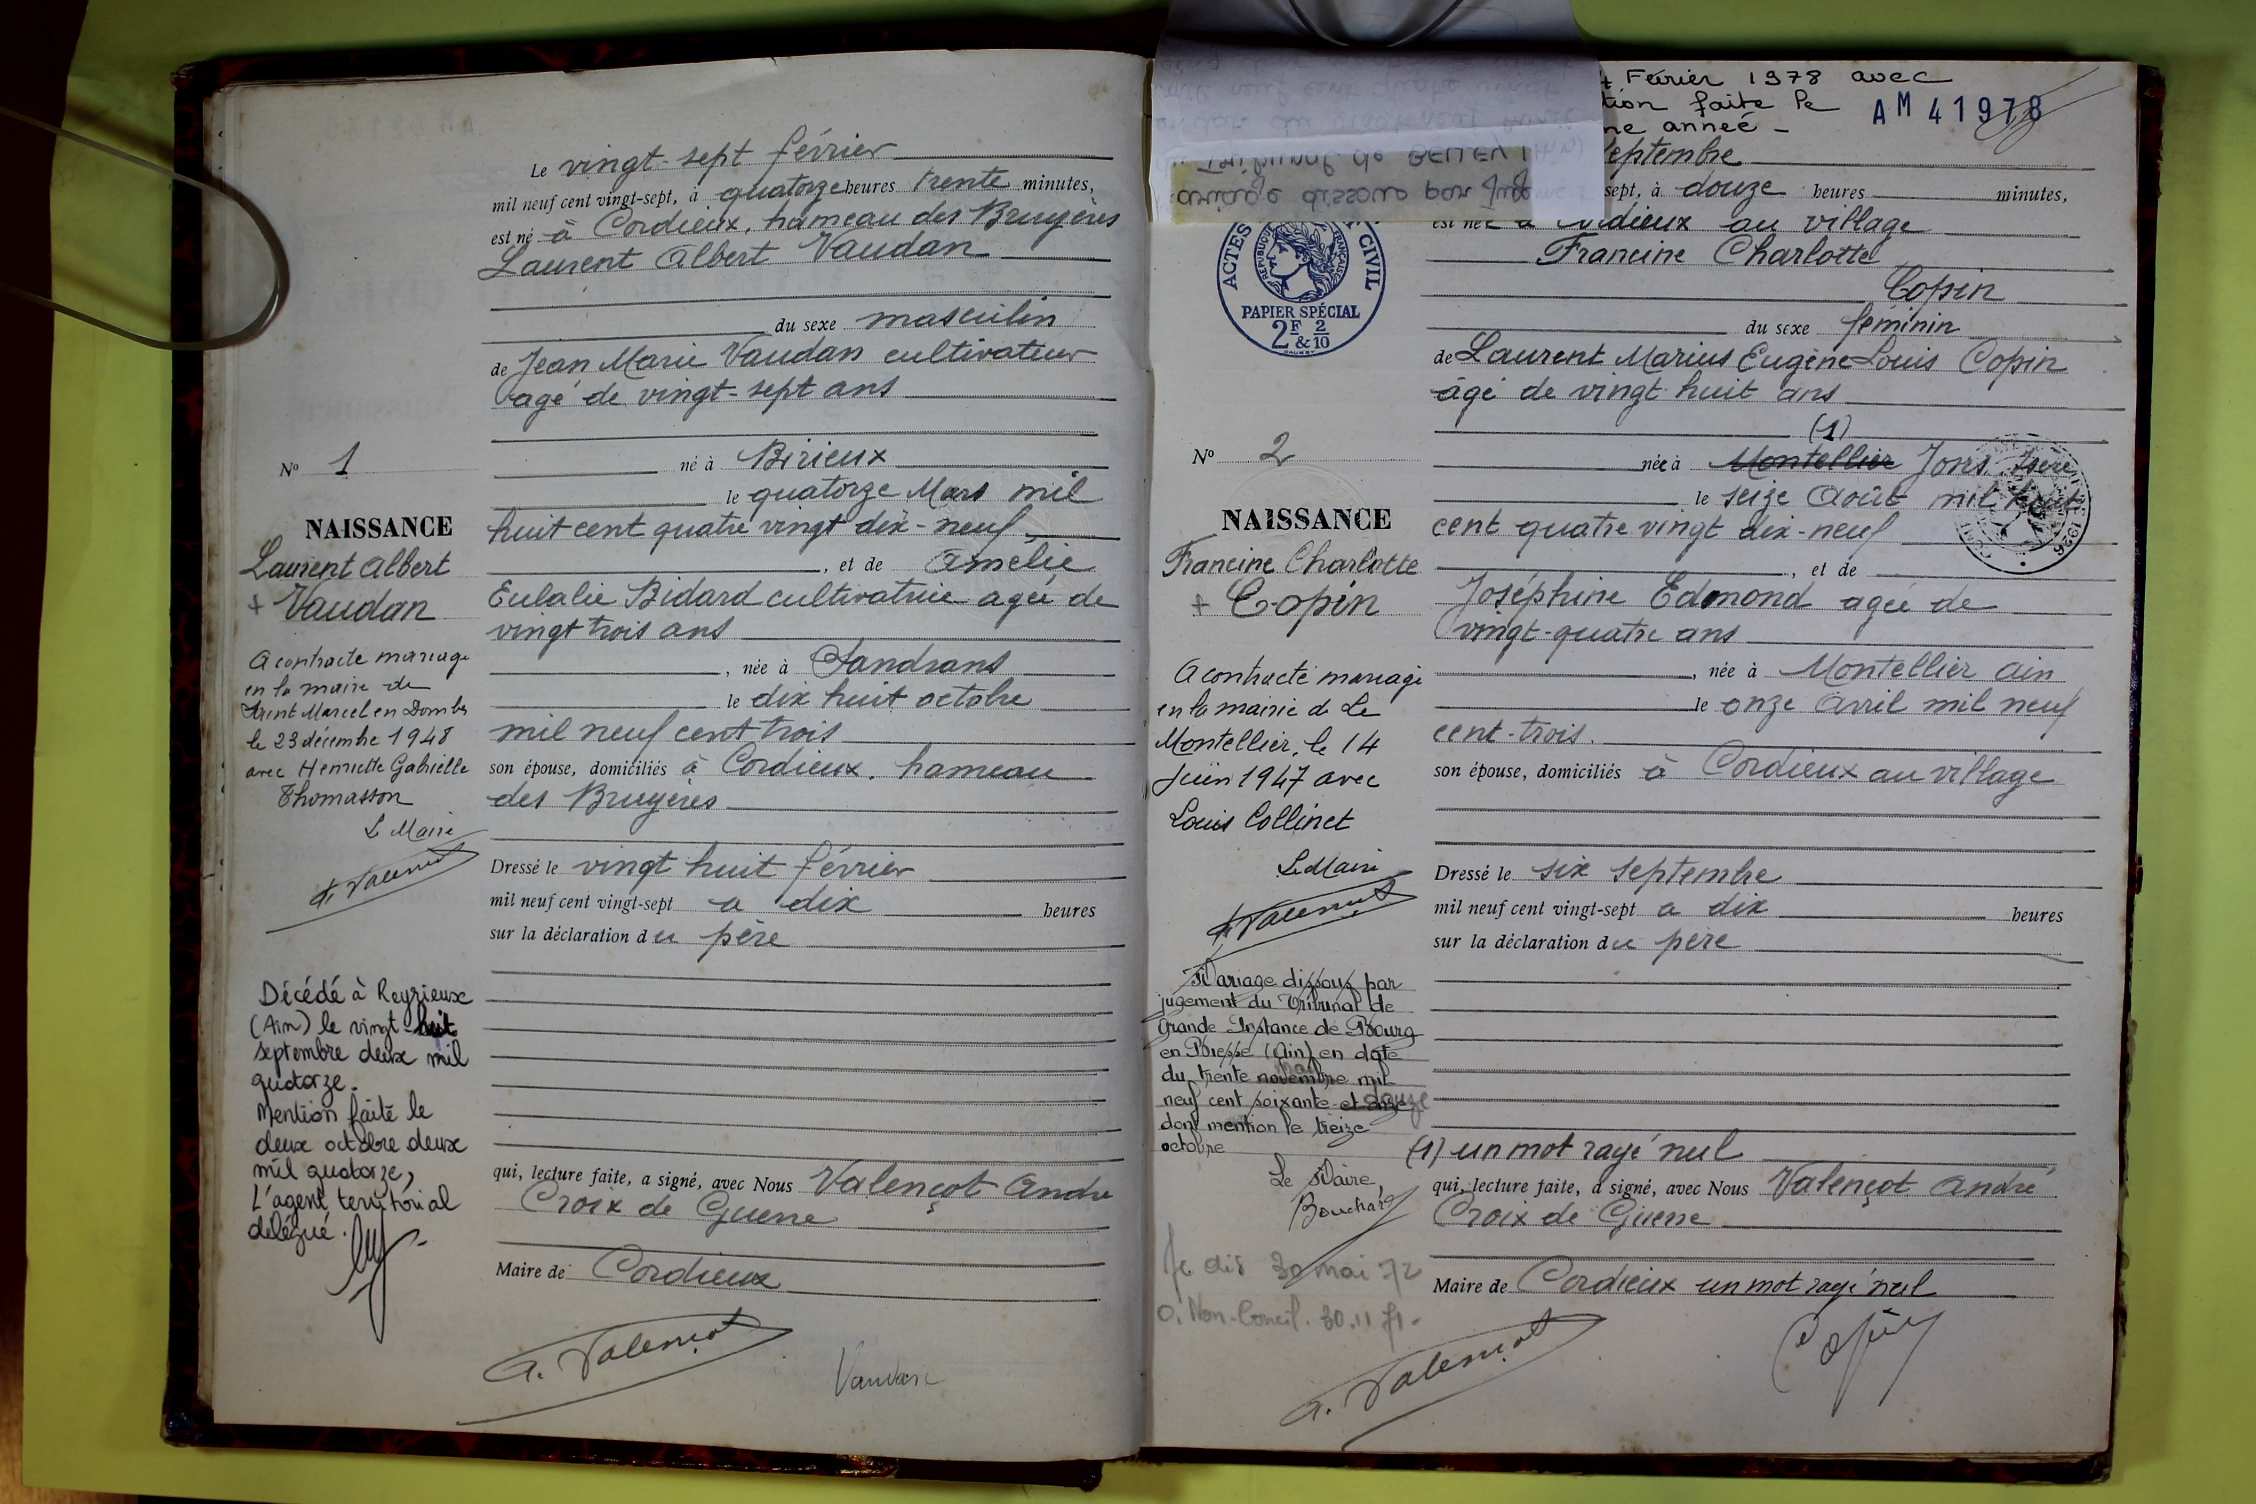 Le vingt-sept février
mil neuf cent vingt-sept, à quatorze heures trente minutes,
est né à Cordieux, hameau des Bruyères
Laurent Albert Vaudan
du sexe masculin
de Jean Marie Vaudan cultivateur
agé de vingt-sept ans
né à Birieux
le quatorze Mars mil
huit cent quatre vingt dix-neuf
, et de Amélie
Eulalie Bidard cultivatrice agée de
vingt trois ans
, née à Sandrans
le dix huit octobre
mil neuf cent trois
son épouse, domiciliés à Cordieux. hameau
des Bruyères
Dressé le vingt huit février
mil neuf cent vingt-sept a dix heures
sur la déclaration du père
qui, lecture faite, a signé, avec Nous Valençot André
Croix de Guerre
Maire de Cordieux
A. Valençot
Vaudan
No 1
NAISSANCE
Laurent Albert
+ Vaudan
A contracté mariage
en la mairie de
Saint Marcel en Dombes
le 23 décembre 1948
avec Henriette Gabrielle
Thomasson
Le Maire
A. Valençot
Décédé à Reyrieux
(Ain) le vingt huit
septembre deux mil
quatorze.
Mention faite le
deux octobre deux
mil quatorze,
L'agent territorial
délégué.
Février 1978 avec
tion faite le
ne anneé -
AM 41978
eptembre
sept, à douze heures minutes,
est née à Cordieux au village
Francine Charlotte
Copin
du sexe féminin
de Laurent Marius Eugène Louis Copin
âgé de vingt-huit ans
(1)
née à Montellier Jons Isère
le seize Août mil huit
cent quatre vingt dix-neuf
, et de
Joséphine Edmond agée de
vingt-quatre ans
, née à Montellier Ain
le onze Avril mil neuf
cent-trois.
son épouse, domiciliés à Cordieux au village
Dressé le six septembre
mil neuf cent vingt-sept a dix heures
sur la déclaration du père
(1) un mot rayé nul
qui, lecture faite, a signé, avec Nous Valençot André
Croix de Guerre
Maire de Cordieux un mot rayé nul
A. Valençot
Copin
ACTES CIVIL
RÉPUBLIQUE FRANÇAISE
PAPIER SPÉCIAL
2F & 2/10
No 2
NAISSANCE
Francine Charlotte
+ Copin
A contracté mariage
en la mairie de Le
Montellier, le 14
Juin 1947 avec
Louis Collinet
Le Maire
A. Valençot
Mariage dissous par
jugement du Tribunal de
Grande Instance de Bourg
en Bresse (Ain) en date
du trente novembre mai mil
neuf cent soixante et onze douze
dont mention le treize
octobre
Le Maire,
Bouchard
Je dis 30 mai 72
O. Non-Concil. 30.11.71.
mariage dissous par
Tribunal de BELLEY